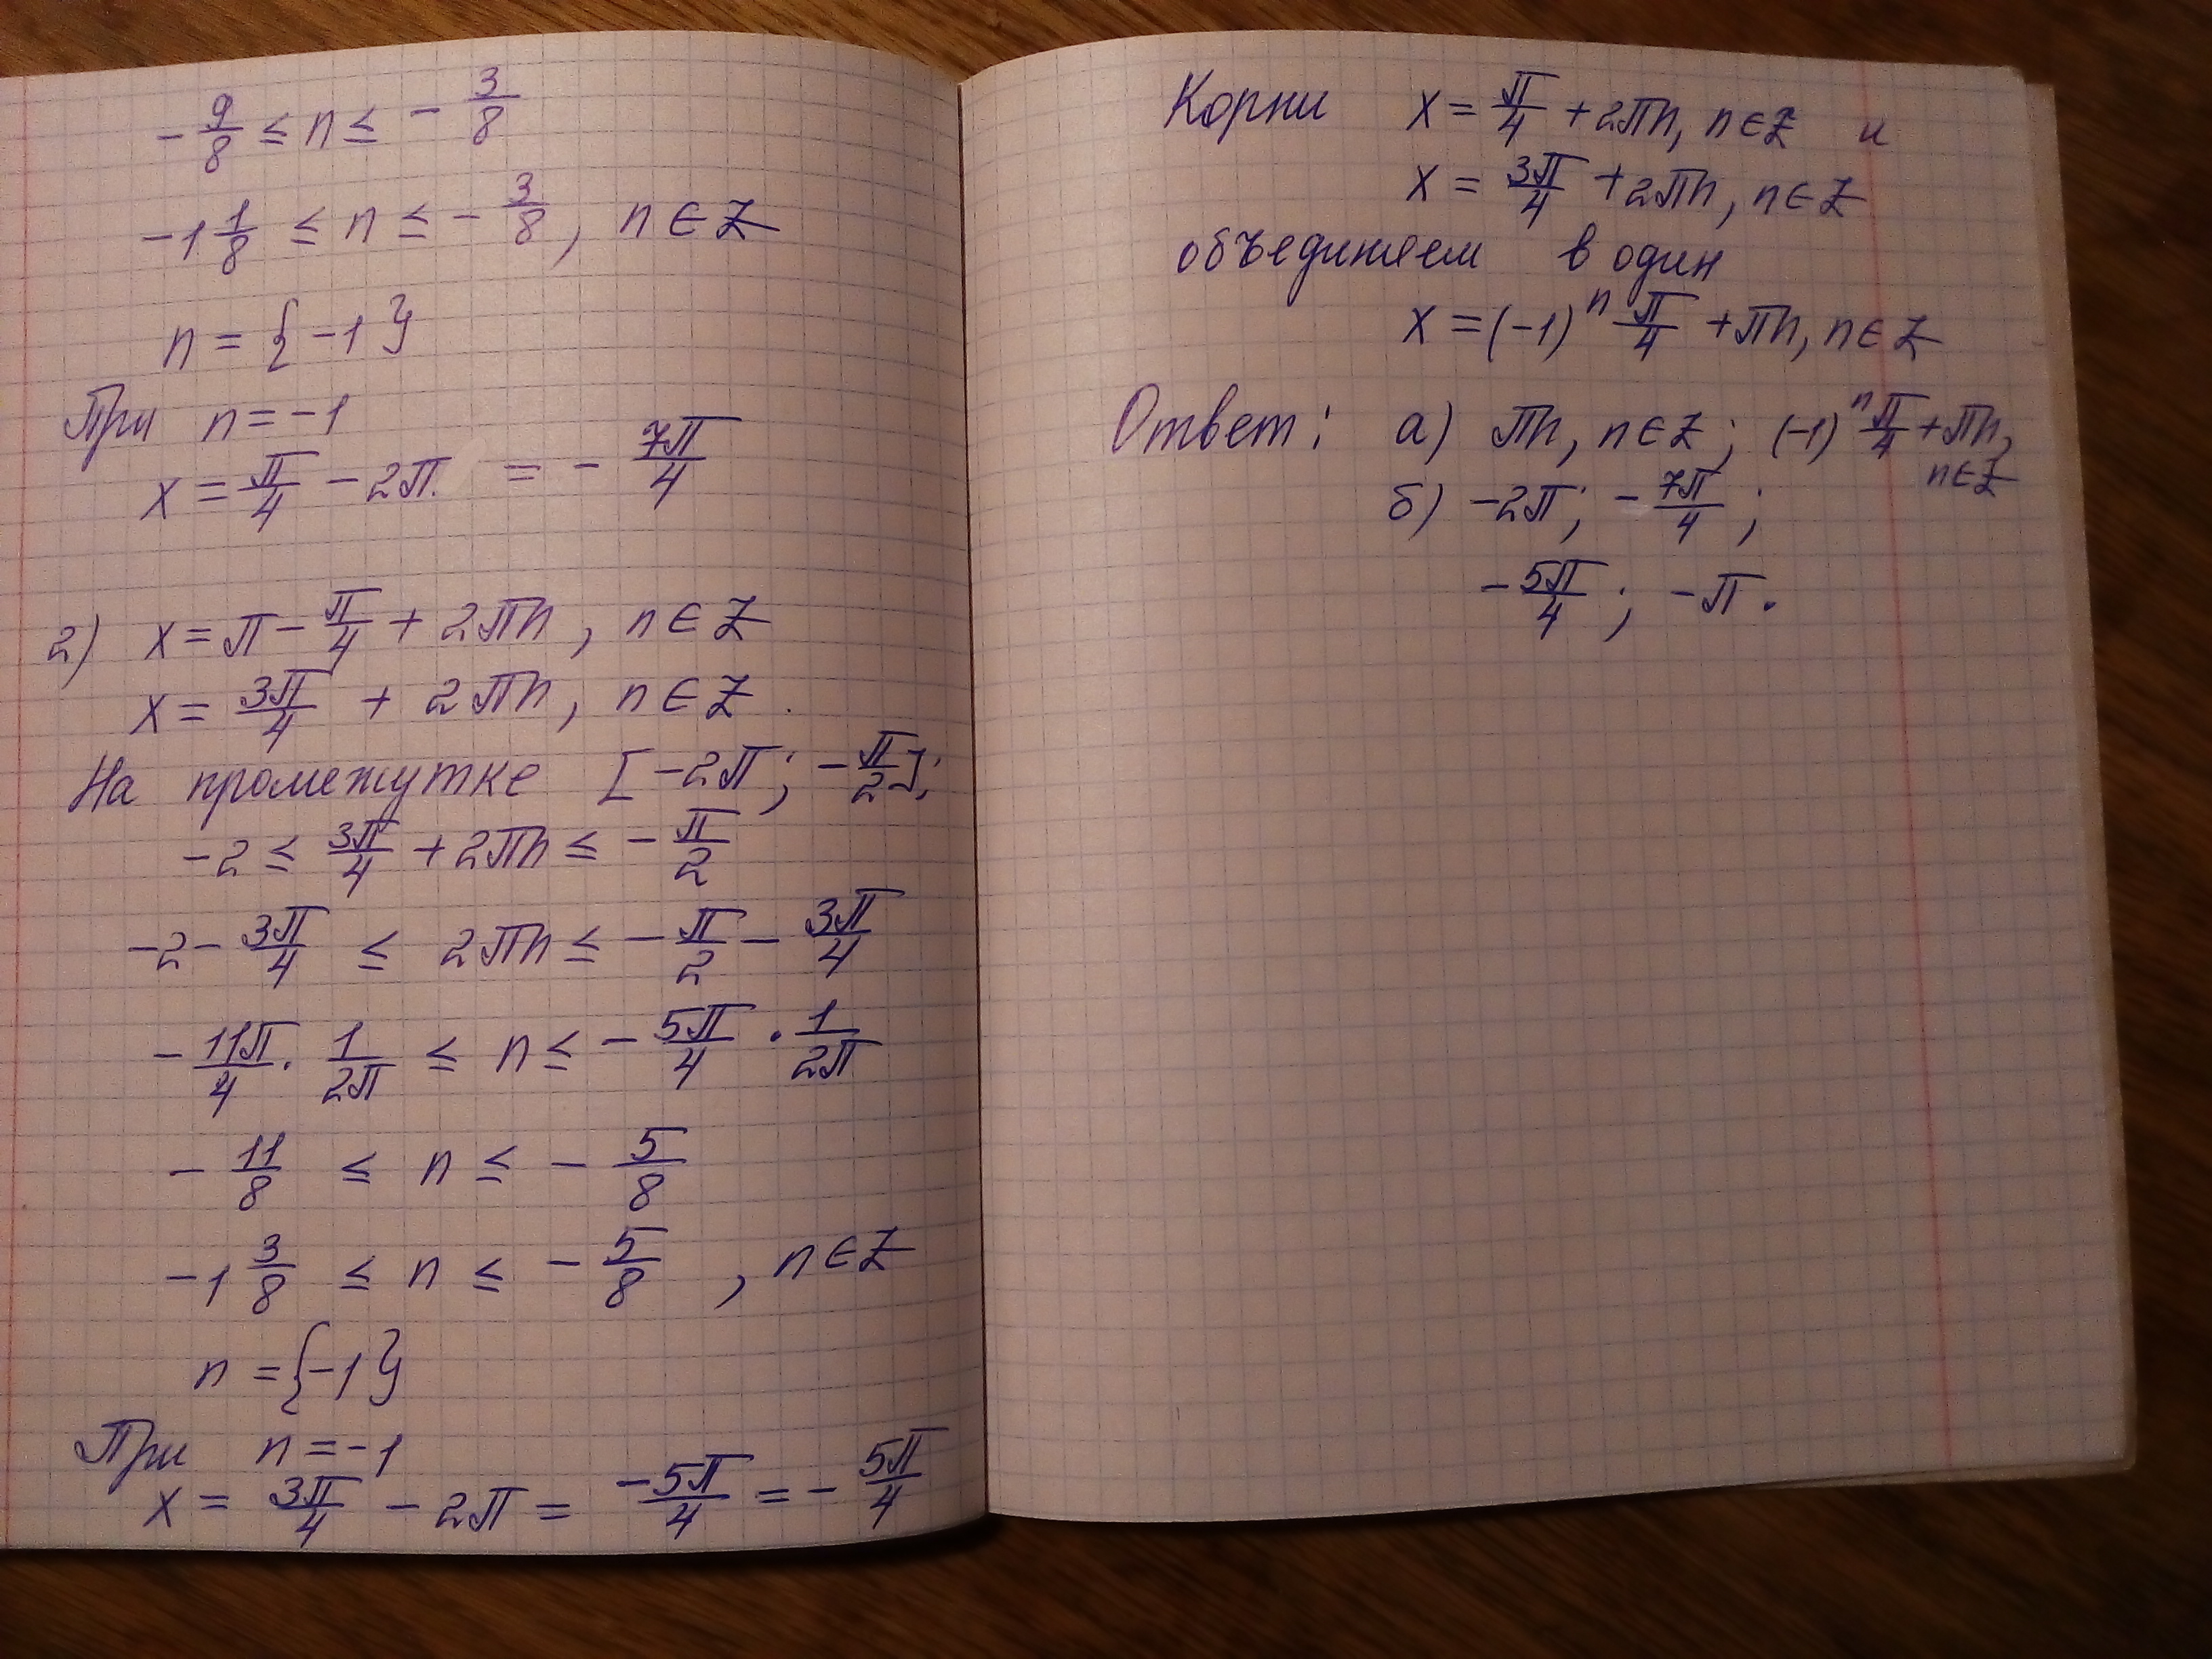 -9/8 ≤ n ≤ -3/8
-1 1/8 ≤ n ≤ -3/8, n∈Z
n = {-1}
При n = -1
x = π/4 - 2π = -7π/4
2) x = π - π/4 + 2πn, n∈Z
x = 3π/4 + 2πn, n∈Z.
На промежутке [-2π; -π/2]:
-2 ≤ 3π/4 + 2πn ≤ -π/2
-2 - 3π/4 ≤ 2πn ≤ -π/2 - 3π/4
-11π/4 · 1/2π ≤ n ≤ -5π/4 · 1/2π
-11/8 ≤ n ≤ -5/8
-1 3/8 ≤ n ≤ -5/8, n∈Z
n = {-1}
При n = -1
x = 3π/4 - 2π = -5π/4 = -5π/4
Корни x = π/4 + 2πn, n∈Z и
x = 3π/4 + 2πn, n∈Z
объединяем в один
x = (-1)^n π/4 + πn, n∈Z
Ответ: а) πn, n∈Z; (-1)^n π/4 + πn,
n∈Z
б) -2π; -7π/4;
-5π/4; -π.